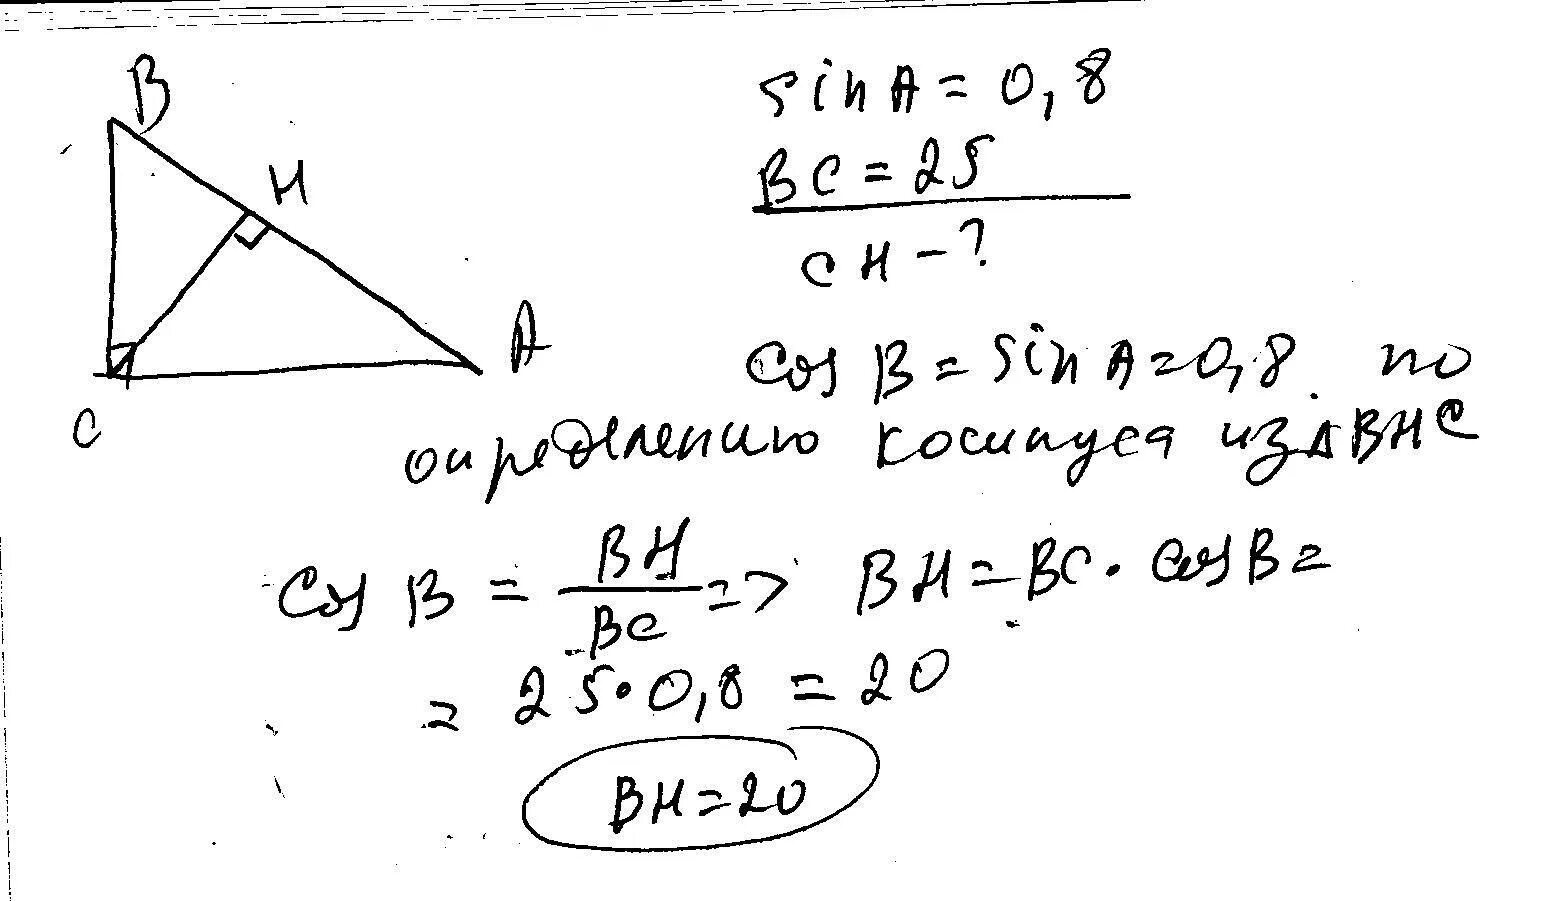 B
H
A
C
sin A = 0,8
BC = 25
CH - ?
cos B = sin A = 0,8. по
определению косинуса из △BHC
cos B = BH / BC => BH = BC · cos B =
= 25 · 0,8 = 20
BH = 20